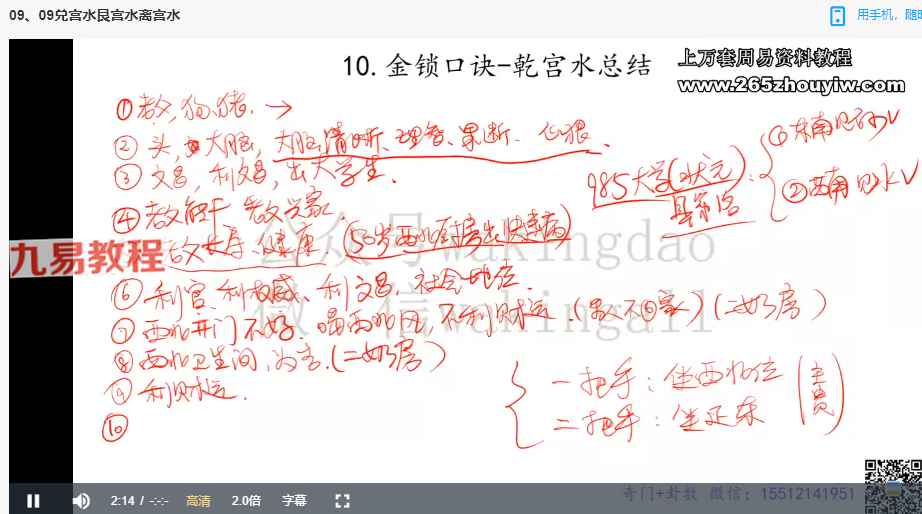 09、09兑宫水艮宫水离宫水
用手机，随
10.金锁口诀-乾宫水总结
上万套周易资料教程
www.265zhouyiw.com
①老父,狗,猪. →
②头, 大脑, 大脑清晰、理智、果断、心狠.
③文昌, 利文昌, 出大学生.
985大学(状元):
县第一
①东南见
②西南见水
④老父能干 老父当家.
老父长寿、健康.
⑥利官 利权威、利文昌, 社会地位.
⑦西北开门不好. 喝西北风, 不利财运 (男人不回家) (二奶房)
⑧西北卫生间, 为吉. (二奶房)
⑨利财运.
⑩
一把手: 坐西北位
二把手: 坐正东
九易教程
公众号wakingdao
微信wakinga11
2:14 / -:-:-
高清
2.0倍
字幕
奇门+卦数 微信：15512141951